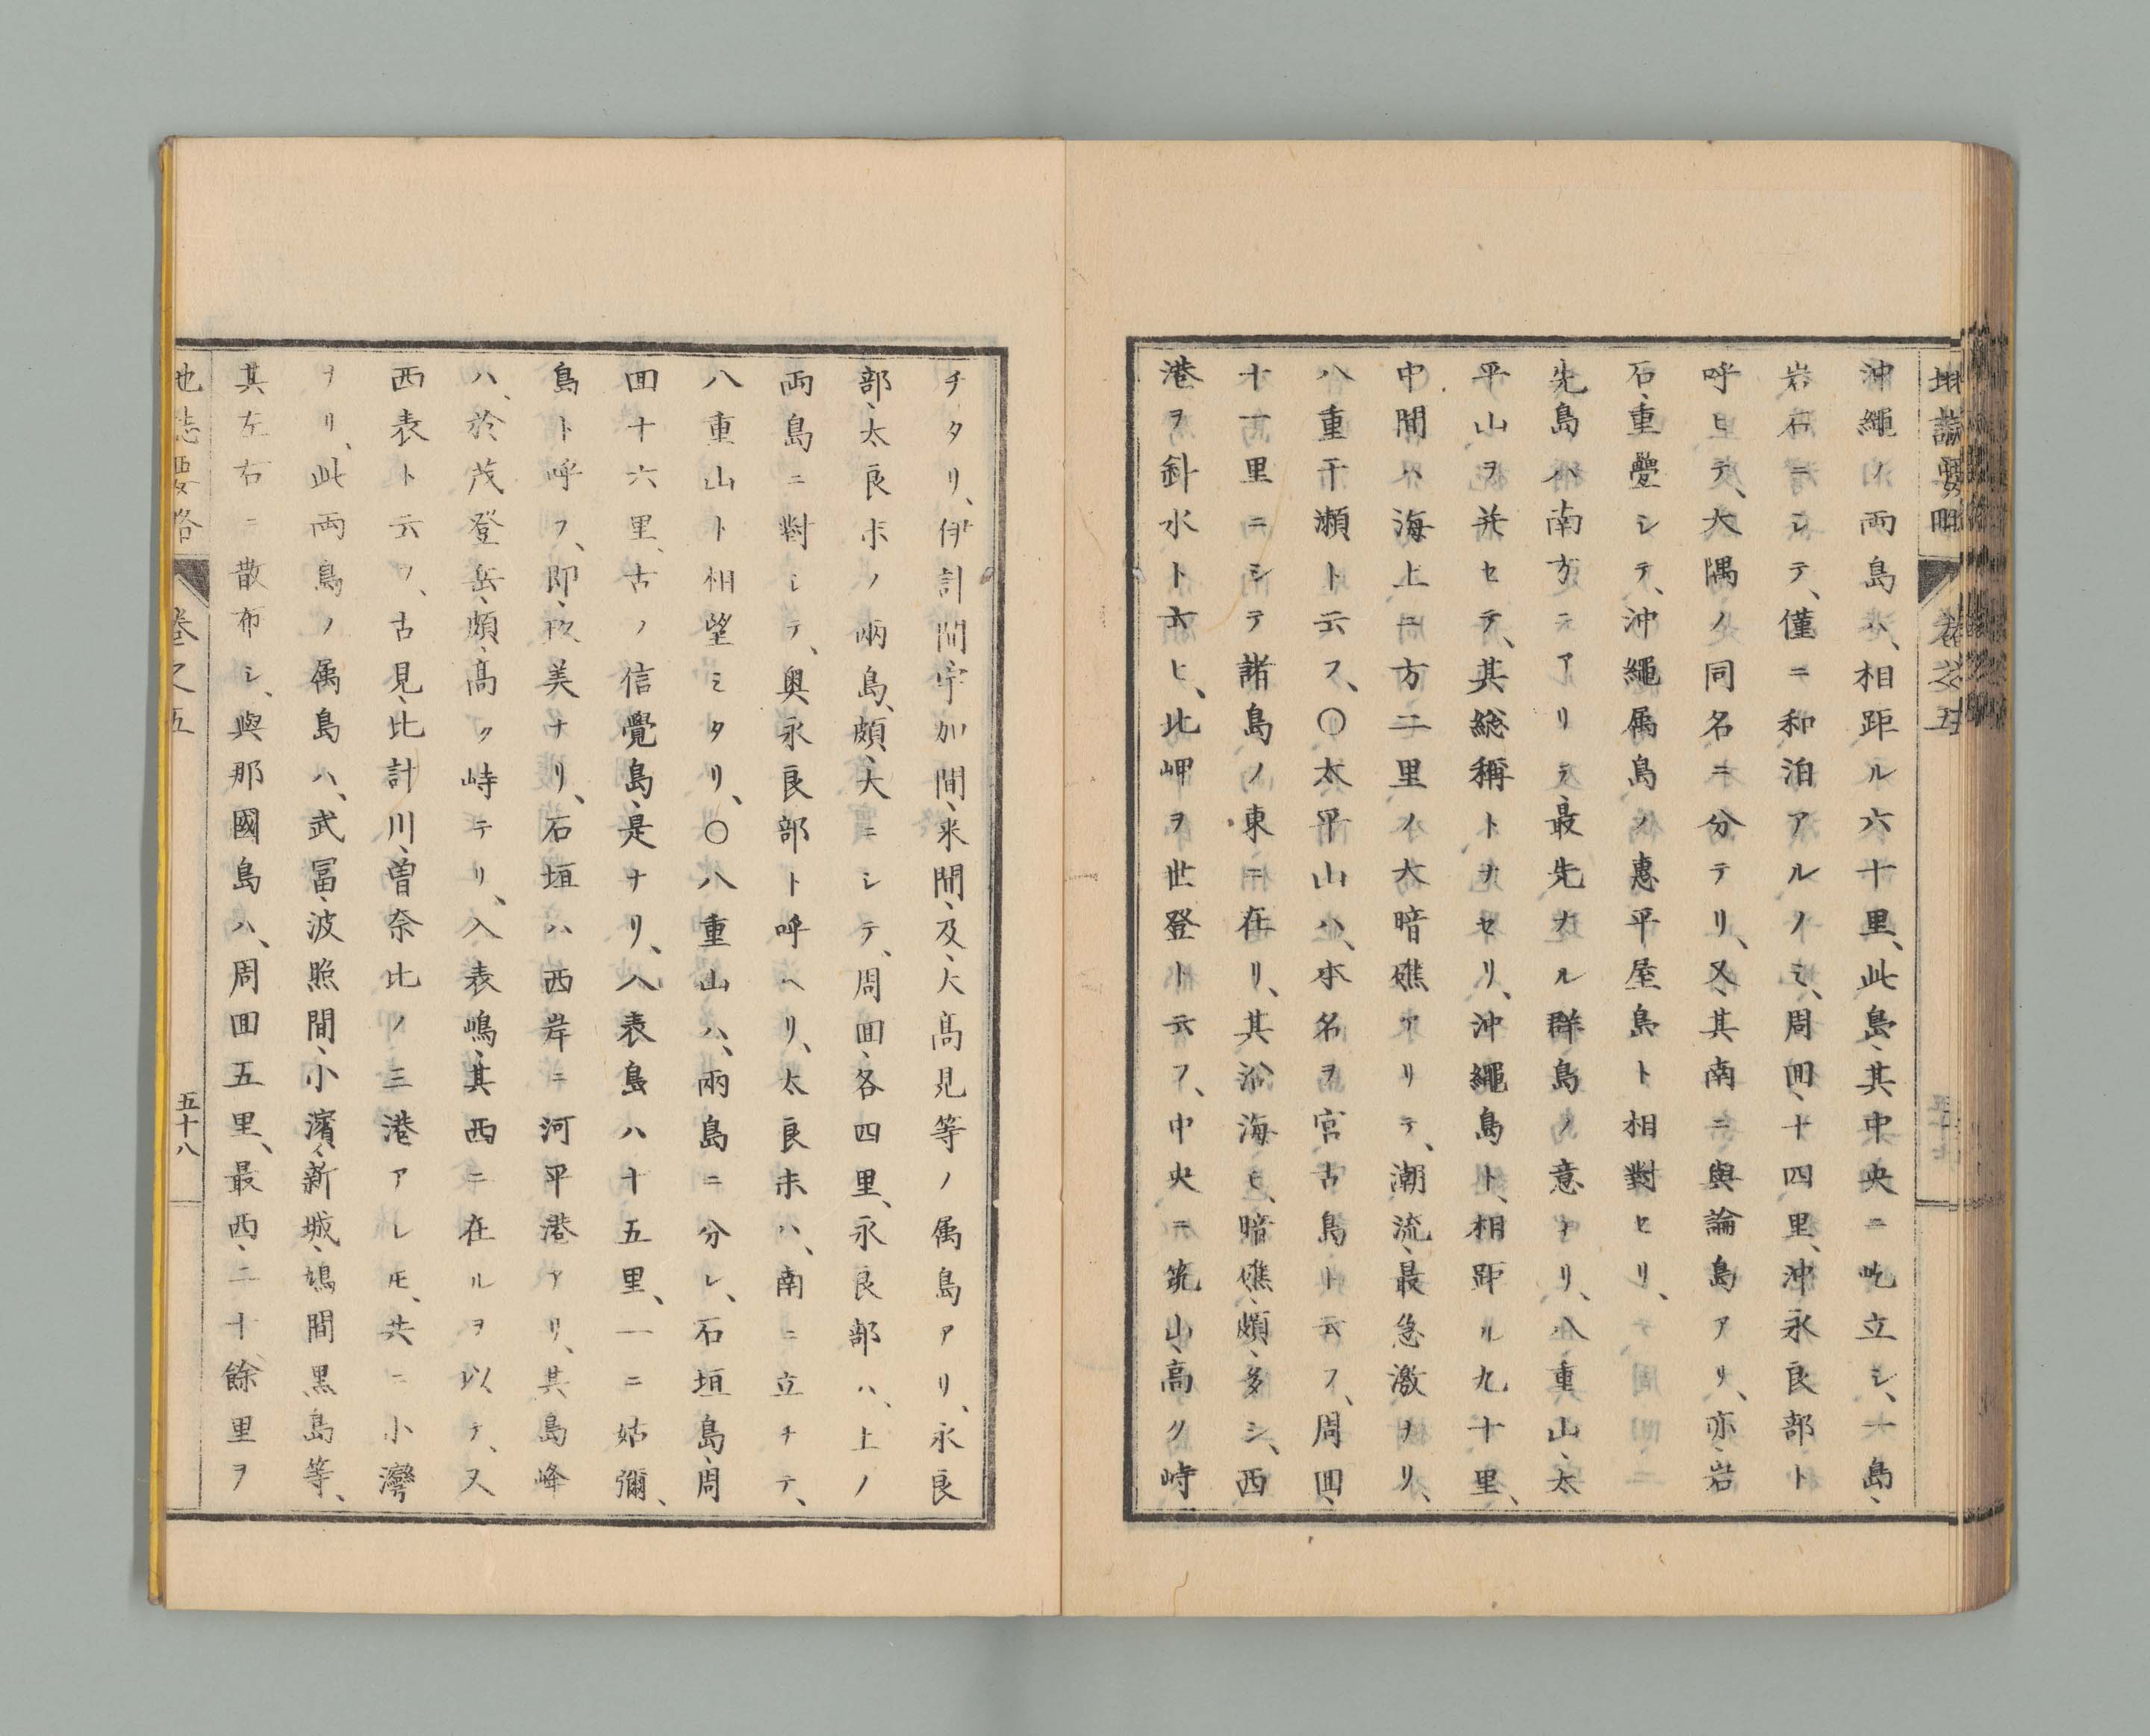 地誌要略 卷之五
沖繩ノ両島ハ、相距ル六十里、此島、其中央ニ屹立シ、一島、
岩石ニシテ、僅ニ和泊アルノミ、周囬、十四里、沖永良部ト
呼ヒテ、大隅ノ同名ニ分テリ、又、其南ニ與論島アリ、亦、岩
石、重疊シテ、沖繩属島ノ惠平屋島ト相對セリ、
先島ハ南方ニアリテ、最先ナル群島ノ意ナリ、八重山、太
平山ヲ并セテ、其総稱トナセリ、沖繩島ト、相距ル九十里、
中間ハ海上ニ方二里ノ大暗礁アリテ、潮流、最急激ナリ、
八重干瀬ト云フ、〇太平山ハ、本名ヲ宮古島ト云フ、周囬、
十一里ニシテ諸島ノ東ニ在リ、其沿海モ、暗礁、頗、多シ、西
港ヲ針水ト云ヒ、北岬ヲ世登ト云フ、中央ニ筑山、高ク峙
チタリ、伊計間宇加間、来間、及、大髙見等ノ属島アリ、永良
部、太良末ノ兩島、頗、大ニシテ、周囬、各四里、永良部ハ、上ノ
両島ニ對シテ、奥永良部ト呼ヘリ、太良末ハ、南ニ立チテ、
八重山ト相望ミタリ、〇八重山ハ、兩島ニ分レ、石垣島、周
囬十六里、古ノ信覺島、是ナリ、入表島ハ十五里、一ニ姑彌、
島ト呼フ、即、夜美ナリ、石垣ハ西岸ニ河平港アリ、其島峰
ハ、於茂登岳、頗、髙ク峙テリ、入表嶋、其西ニ在ルヲ以テ、又
西表ト云フ、古見、比計川、曽奈比ノ三港アレモ、共ニ小灣
ナリ、此両島ノ属島ハ、武冨、波照間、小濱、新城、鳩間黒島等、
其左右ニ散布シ、與那國島ハ、周囬五里、最西、二十餘里ヲ
地誌要略 卷之五 五十八